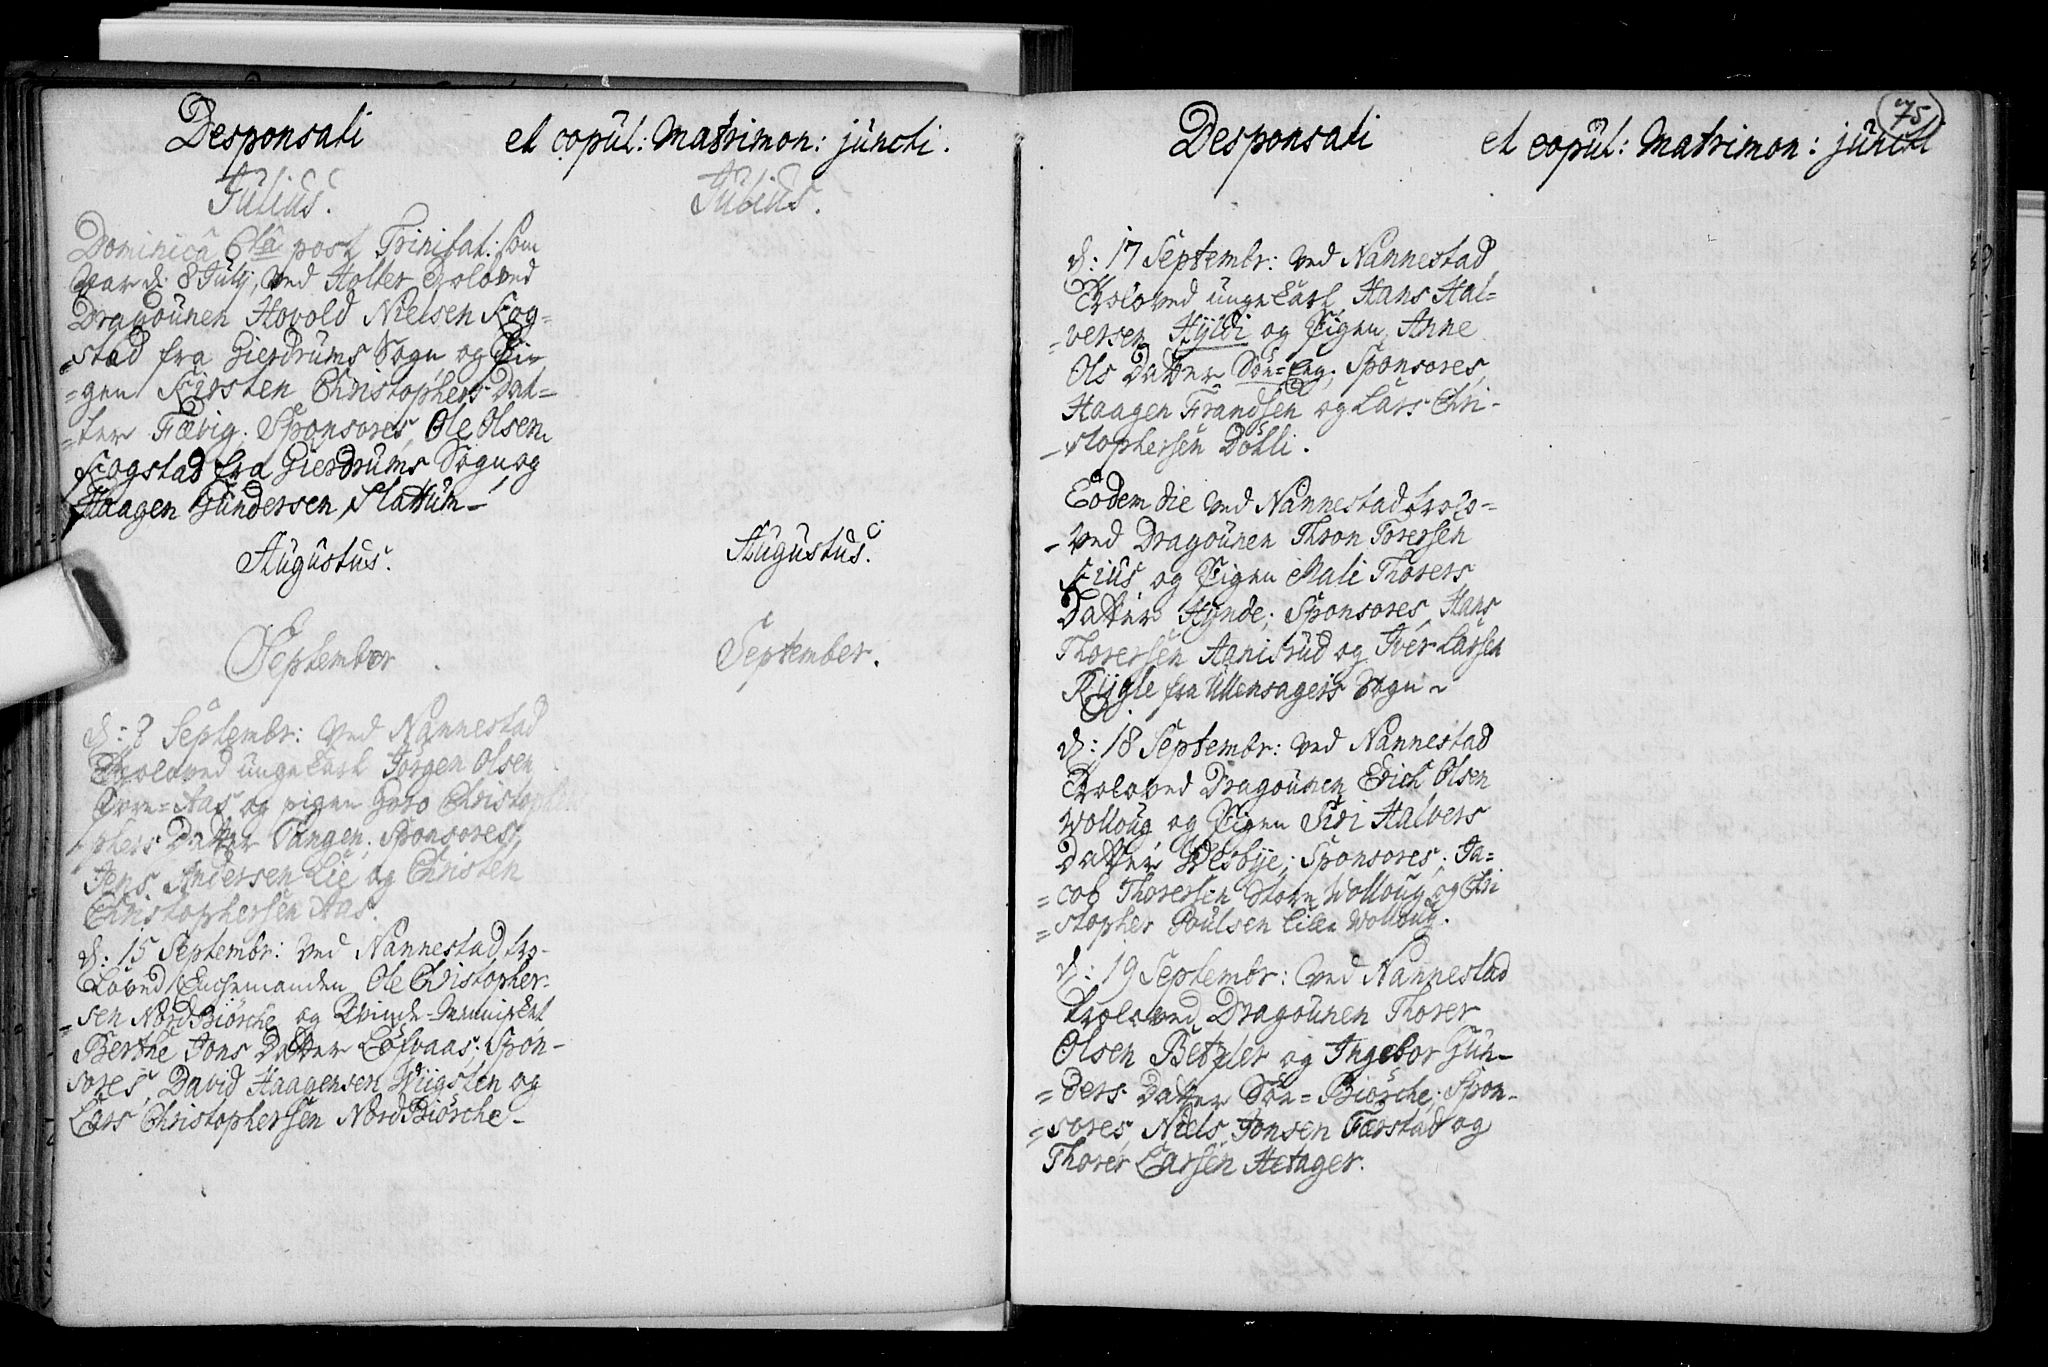 Desponsati et copul: Matrimon: juncti.
Julius.
Dominicâ 6tâ post Trinitat: som
var d: 8 July, ved Holter troloved
Dragounen Hovold Nielsen Kog-
=stad fra Gierdrums Sogn og Pi-
=gen Kirsten Christophers Dat-
=ter Fæbig. Sponsores, Ole Olsen
Kogstad fra Gierdrums Sogn og
Haagen Gundersen Slattum-
Augustus.
September
d: 8 Septembr: ved Nannestad
Troloved unge Karl Jörgen Olsen
Övre=Aas og pigen Guro Christo-
phers Datter Tangen. Sponsores,
Jens Andersen Lie og Christen
Christophersen Aas.
d: 15 Septembr: ved Nannestad tro-
loved Enchemanden Ole Christopher-
=sen Nord Biörche og Qvinde-Mennisket
Berthe Jons Datter Löfvaas; Spon-
sores, David Haagensen Wiigsten og
Lars Christophersen Nord Biörche-
Julius.
Augustus.
September.
75
Desponsati et copul: Matrimon: juncti
d: 17 Septembr: ved Nannestad
Troloved unge Karl Hans Hal=
=versen Hyldi og Pigen Anne
Ols Datter Sön=Eng; Sponsores,
Haagen Frandsen og Lars Chri-
-stophersen Döhli.
Eodem die ved Nannestad trolo=
-ved Dragounen Thron Torersen
Kius og Pigen Mali Thorers
Datter Hynde; Sponsores, Hans
Thorersen Aanisrud og Iver Larsen
Rygle fra Ullensagers Sogn-
d: 18 Septembr: ved Nannestad
Troloved Dragounen Erich Olsen
Wolloug og Pigen Siri Halvers
Datter Wesbye; Sponsores; Ja=
=cob Thorersen Store Wolloug og Chri
=stopher Poulsen Lille Wolloug.
d: 19 Septembr: ved Nannestad
troloved Dragounen Thorer
Olsen Betzler og Ingebor Gun-
=ders Datter Sön=Biörche; Spon-
=sores, Niels Jonsen Færstad og
Thorer Larsen Aetager.